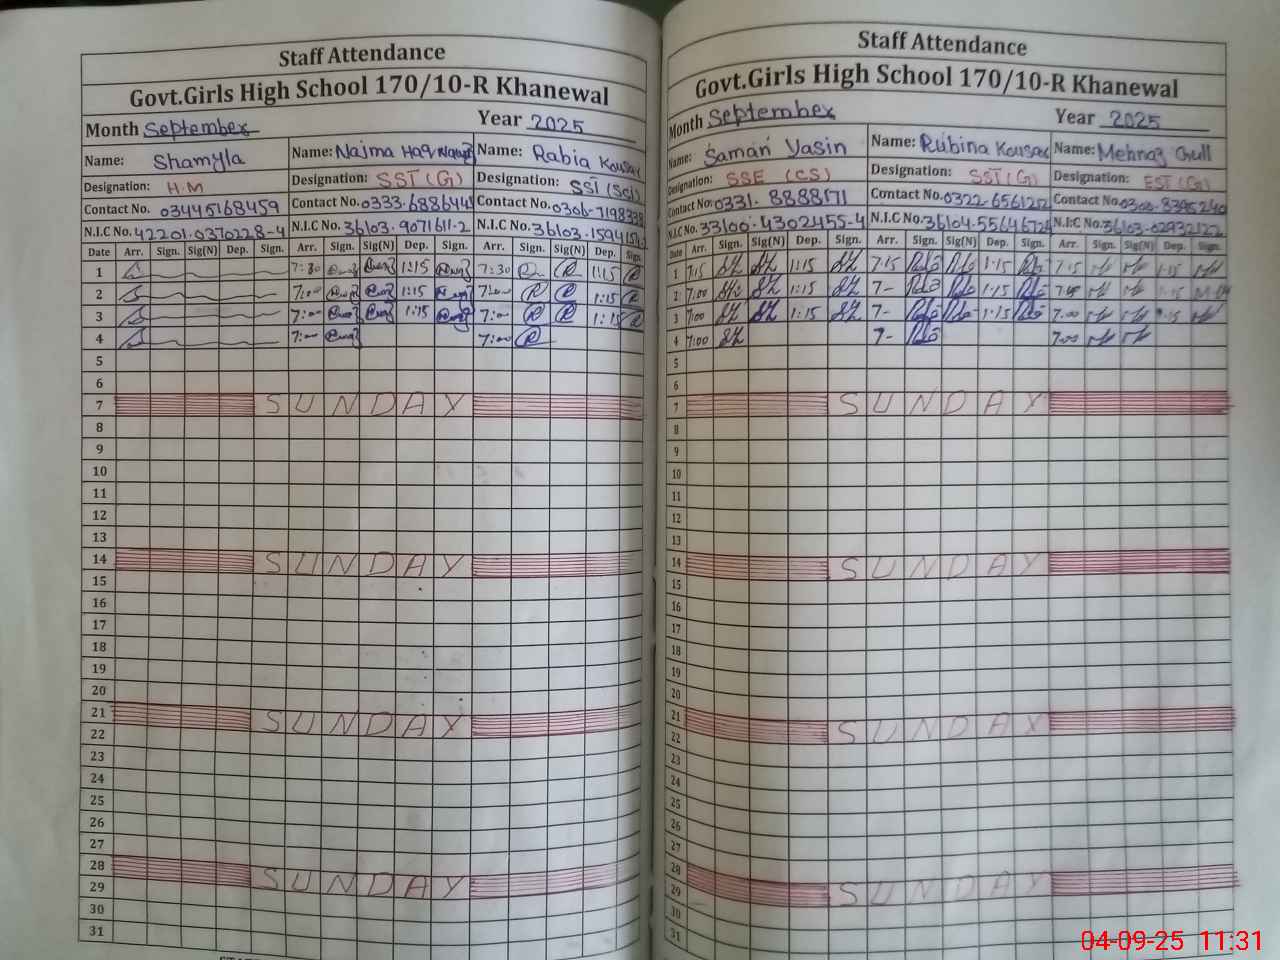 Staff Attendance
Govt.Girls High School 170/10-R Khanewal
Month September Year 2025
Name: Shamyla Name: Najma Haq Name: Rabia Kousar
Designation: H.M Designation: SST (G) Designation: SST (Sci)
Contact No. 03445168459 Contact No. 0333-688644 Contact No. 0306-7198338
N.I.C No. 42201-0370228-4 N.I.C No. 36103-9071611-2 N.I.C No. 36103-159415
Date Arr. Sign. Sig(N) Dep. Sign. Arr. Sign. Sig(N) Dep. Sign. Arr. Sign. Sig(N) Dep. Sign.
1 7:30 1:15 7:30 1:15
2 7:00 1:15 7:00 1:15
3 7:00 1:15 7:00 1:15
4 7:00 7:00
5
6
7 SUNDAY
8
9
10
11
12
13
14 SUNDAY
15
16
17
18
19
20
21 SUNDAY
22
23
24
25
26
27
28 SUNDAY
29
30
31
Staff Attendance
Govt.Girls High School 170/10-R Khanewal
Month September Year 2025
Name: Saman Yasin Name: Rubina Kousar Name: Mehnaz Gull
Designation: SSE (CS) Designation: SST (G) Designation: EST (G)
Contact No. 0331-8888171 Contact No. 0322-656125 Contact No.
N.I.C No. 33100-4302455-4 N.I.C No. N.I.C No.
Date Arr. Sign. Sig(N) Dep. Sign. Arr. Sign. Sig(N) Dep. Sign. Arr. Sign. Sig(N) Dep. Sign.
1 7:15 1:15 7:15 1:15 7:15 1:15
2 7:00 1:15 7- 1:15
3 7:00 1:15 7- 1:15 7:00 1:15
4 7:00 7- 7:00
5
6
7 SUNDAY
8
9
10
11
12
13
14 SUNDAY
15
16
17
18
19
20
21 SUNDAY
22
23
24
25
26
27
28 SUNDAY
29
30
31
04-09-25 11:31